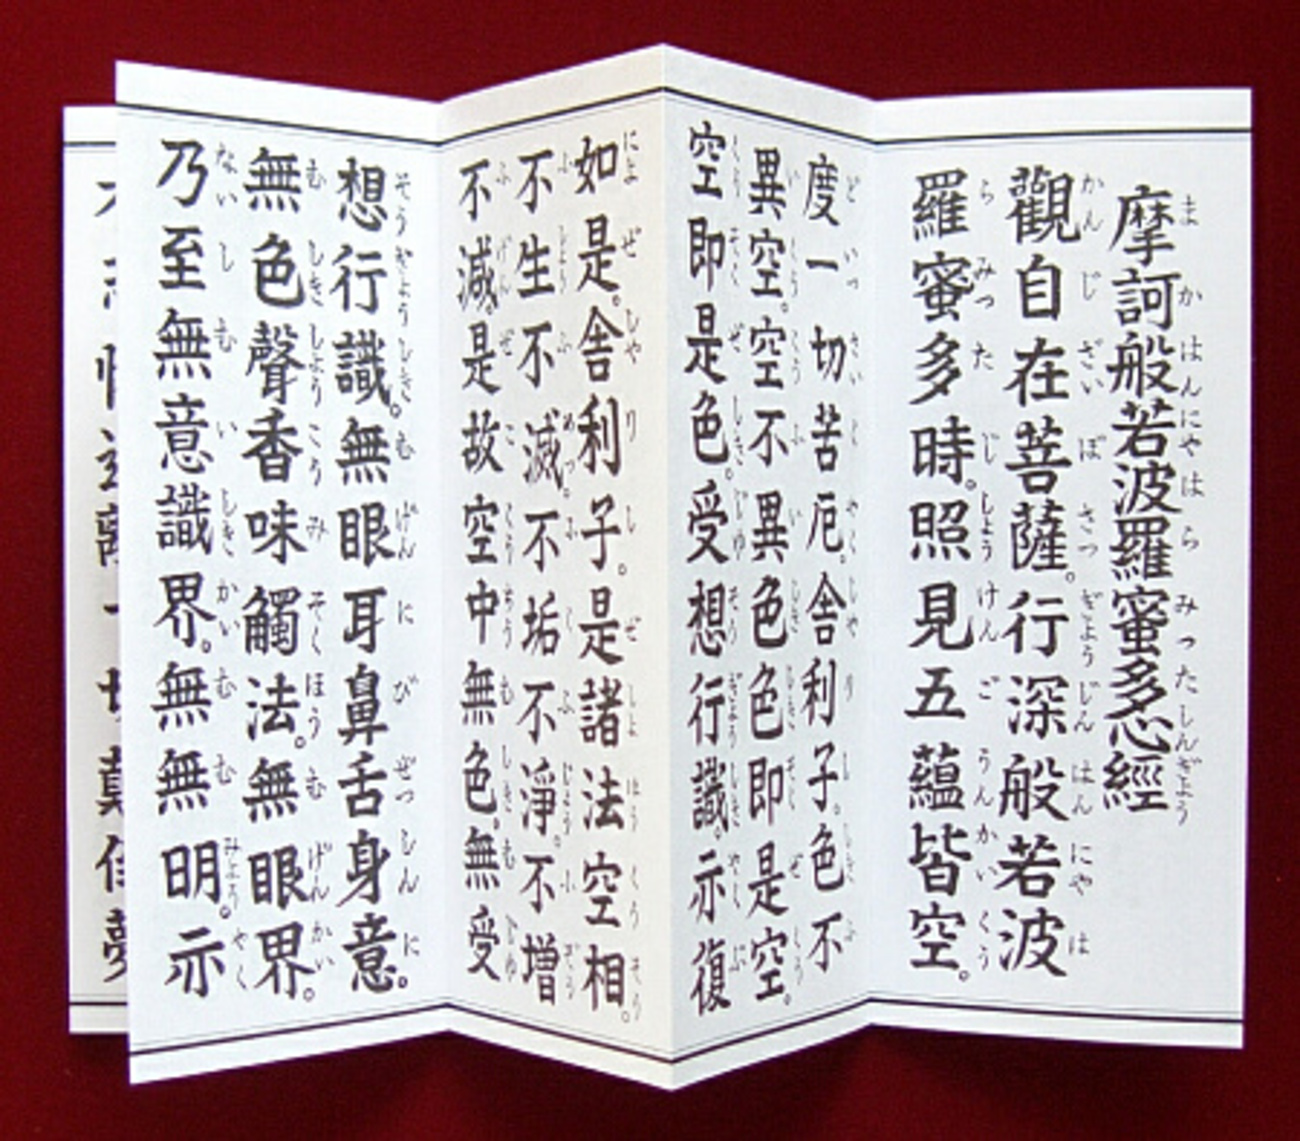 摩訶般若波羅蜜多心經
觀自在菩薩。行深般若波
羅蜜多時。照見五蘊皆空。
度一切苦厄。舍利子。色不
異空。空不異色色即是空。
空即是色。受想行識。亦復
如是。舍利子。是諸法空相。
不生不滅。不垢不淨。不増
不減。是故空中無色。無受
想行識。無眼耳鼻舌身意。
無色聲香味觸法。無眼界。
乃至無意識界。無無明。亦